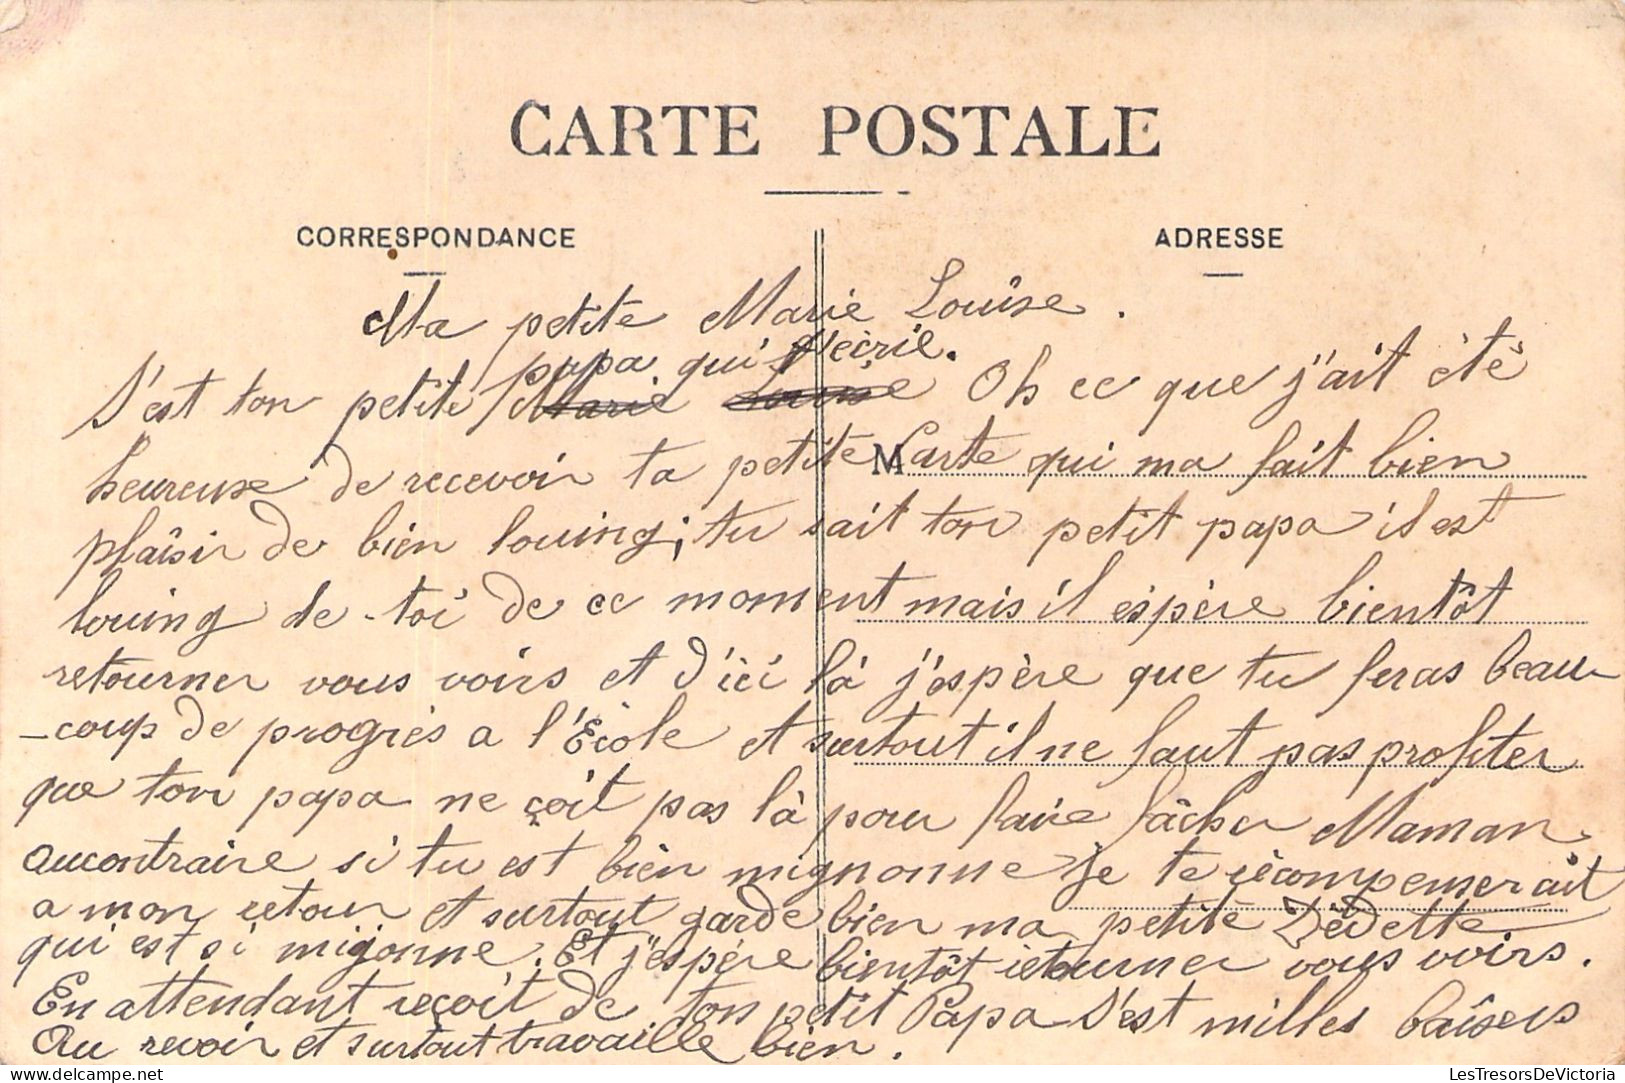 CARTE POSTALE
CORRESPONDANCE
ADRESSE
Ma petite Marie Louise.
papa qui t'écrie.
S'est ton petite Marie Louise Oh ce que j'ait été
heureuse de recevoir ta petite Carte qui ma fait bien
M
plaîsir de bien louing; tu sait ton petit papa il est
louing de toi de ce moment mais il éspère bientôt
retourner vous voirs et d'ici là j'éspère que tu feras beau-
-coup de progrès a l'École et surtout il ne faut pas profiter
que ton papa ne çoit pas là pour faire fâcher Maman
aucontraire si tu est bien mignonne je te récompenserait
a mon retour et surtout garde bien ma petite Dédette
qui est si migonne. Et j'éspère bientôt retourner vous voirs.
En attendant reçoit de ton petit Papa S'est milles baîsers
Au revoir et surtout travaille bien.
LesTresorsDeVictoria www.delcampe.net